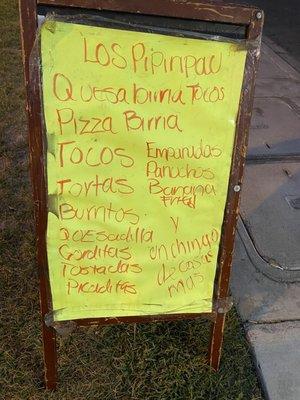 Los Pipinpau
Quesa birria Tacos
Pizza Birria
Tacos
Tortas
Burritos
Quesadilla
Gorditas
Tostadas
Picaditas
Empanadas
Panuchos
Banana
Frita
y
un chingo
de cosas
mas